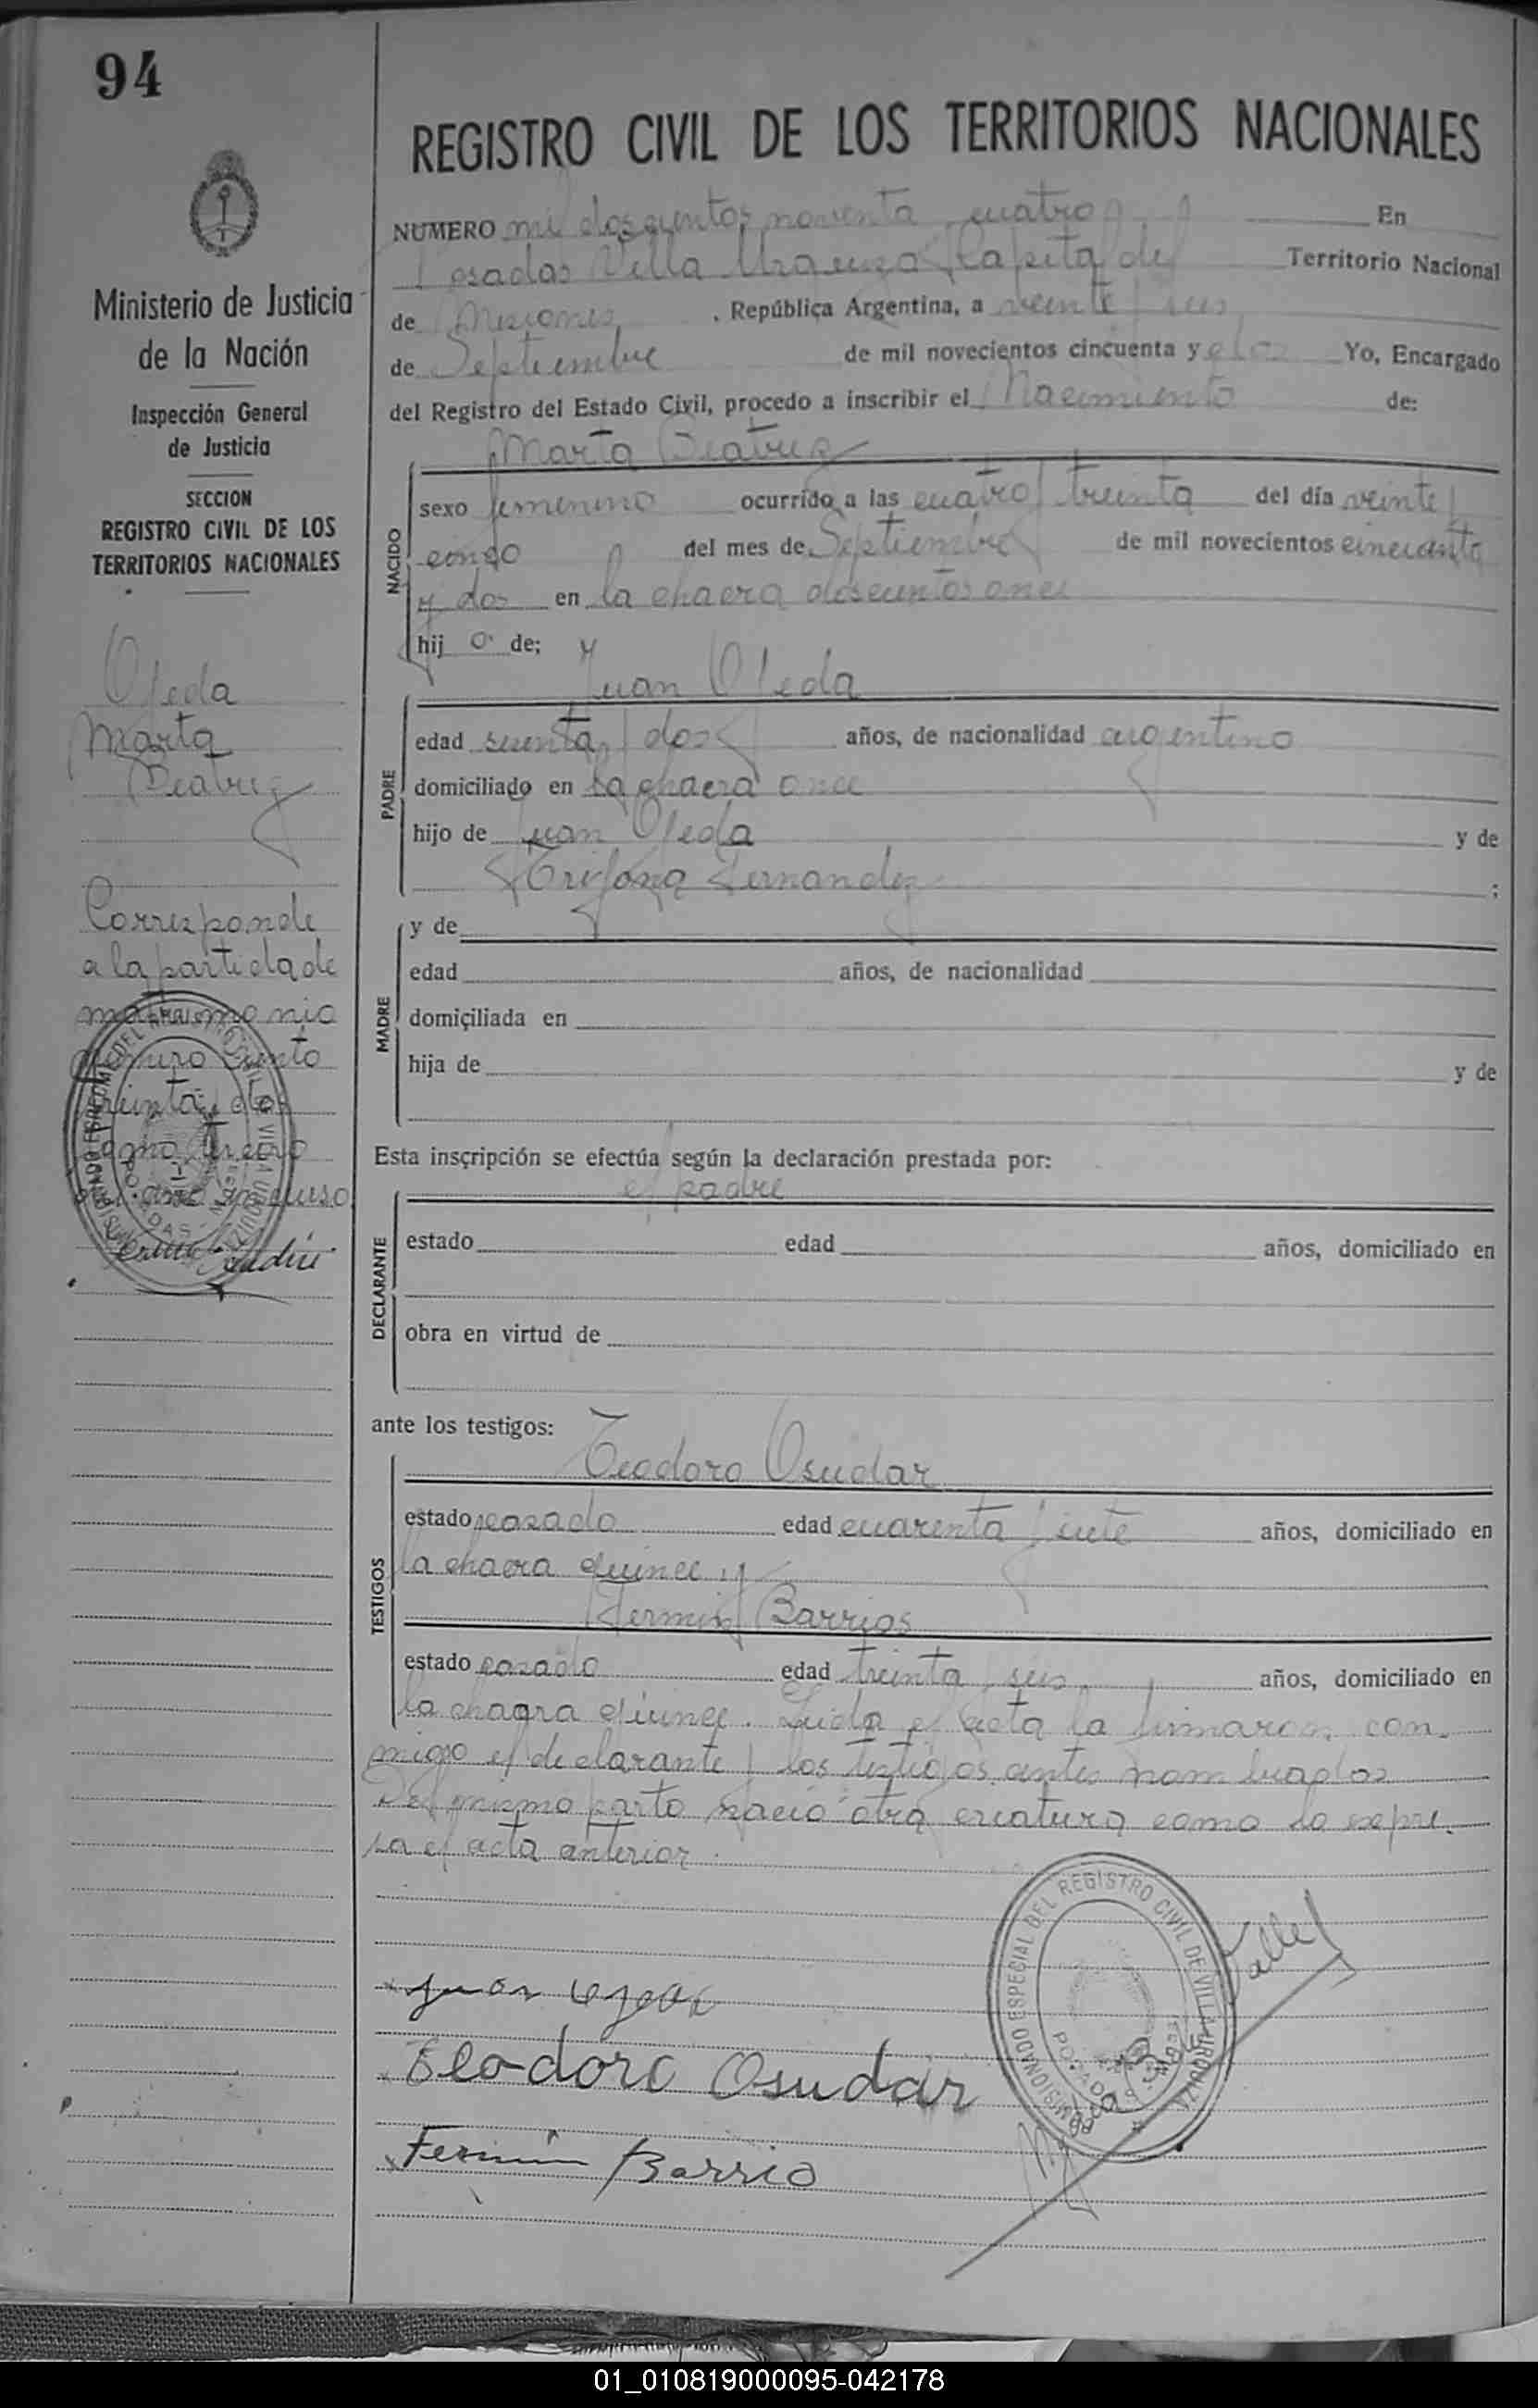 94
REGISTRO CIVIL DE LOS TERRITORIOS NACIONALES
NUMERO mil doscientos noventa cuatro En
Posadas Villa Urquiza Capital del Territorio Nacional
de Misiones, República Argentina, a veinte y seis
de Septiembre de mil novecientos cincuenta y dos Yo, Encargado
del Registro del Estado Civil, procedo a inscribir el Nacimiento de:
Marta Beatriz
sexo femenino ocurrido a las cuatro y treinta del día veinte y
cinco del mes de Septiembre de mil novecientos cincuenta
y dos en la chacra doscientos once
hij a de;
Juan Ojeda
edad años, de nacionalidad argentino
domiciliado en la chacra once
hijo de Juan Ojeda y de
Trifona Fernandez ;
y de
edad años, de nacionalidad
domiciliada en
hija de y de
Esta inscripción se efectúa según la declaración prestada por:
el padre
estado edad años, domiciliado en
obra en virtud de
ante los testigos:
Teodoro Osudar
estado casado edad cuarenta y siete años, domiciliado en
la chacra quince y
Fermin Barrios
estado casado edad treinta y seis años, domiciliado en
la chacra quince. Leida el acta la firmaron con-
migo el declarante y los testigos antes nombrados
Del mismo parto nació otra criatura como lo expre-
sa el acta anterior.
Juan Ojeda
Teodoro Osudar
Fermin Barrio
Valle
NACIDO
PADRE
MADRE
DECLARANTE
TESTIGOS
Ministerio de Justicia
de la Nación
Inspección General
de Justicia
SECCION
REGISTRO CIVIL DE LOS
TERRITORIOS NACIONALES
Ojeda
Marta
Beatriz
Corresponde
a la partida de
matrimonio
numero ciento
treinta y dos
tomo
del año en curso
ENCARGADO ESPECIAL DEL REGISTRO CIVIL DE VILLA URQUIZA
POSADAS
01_010819000095-042178